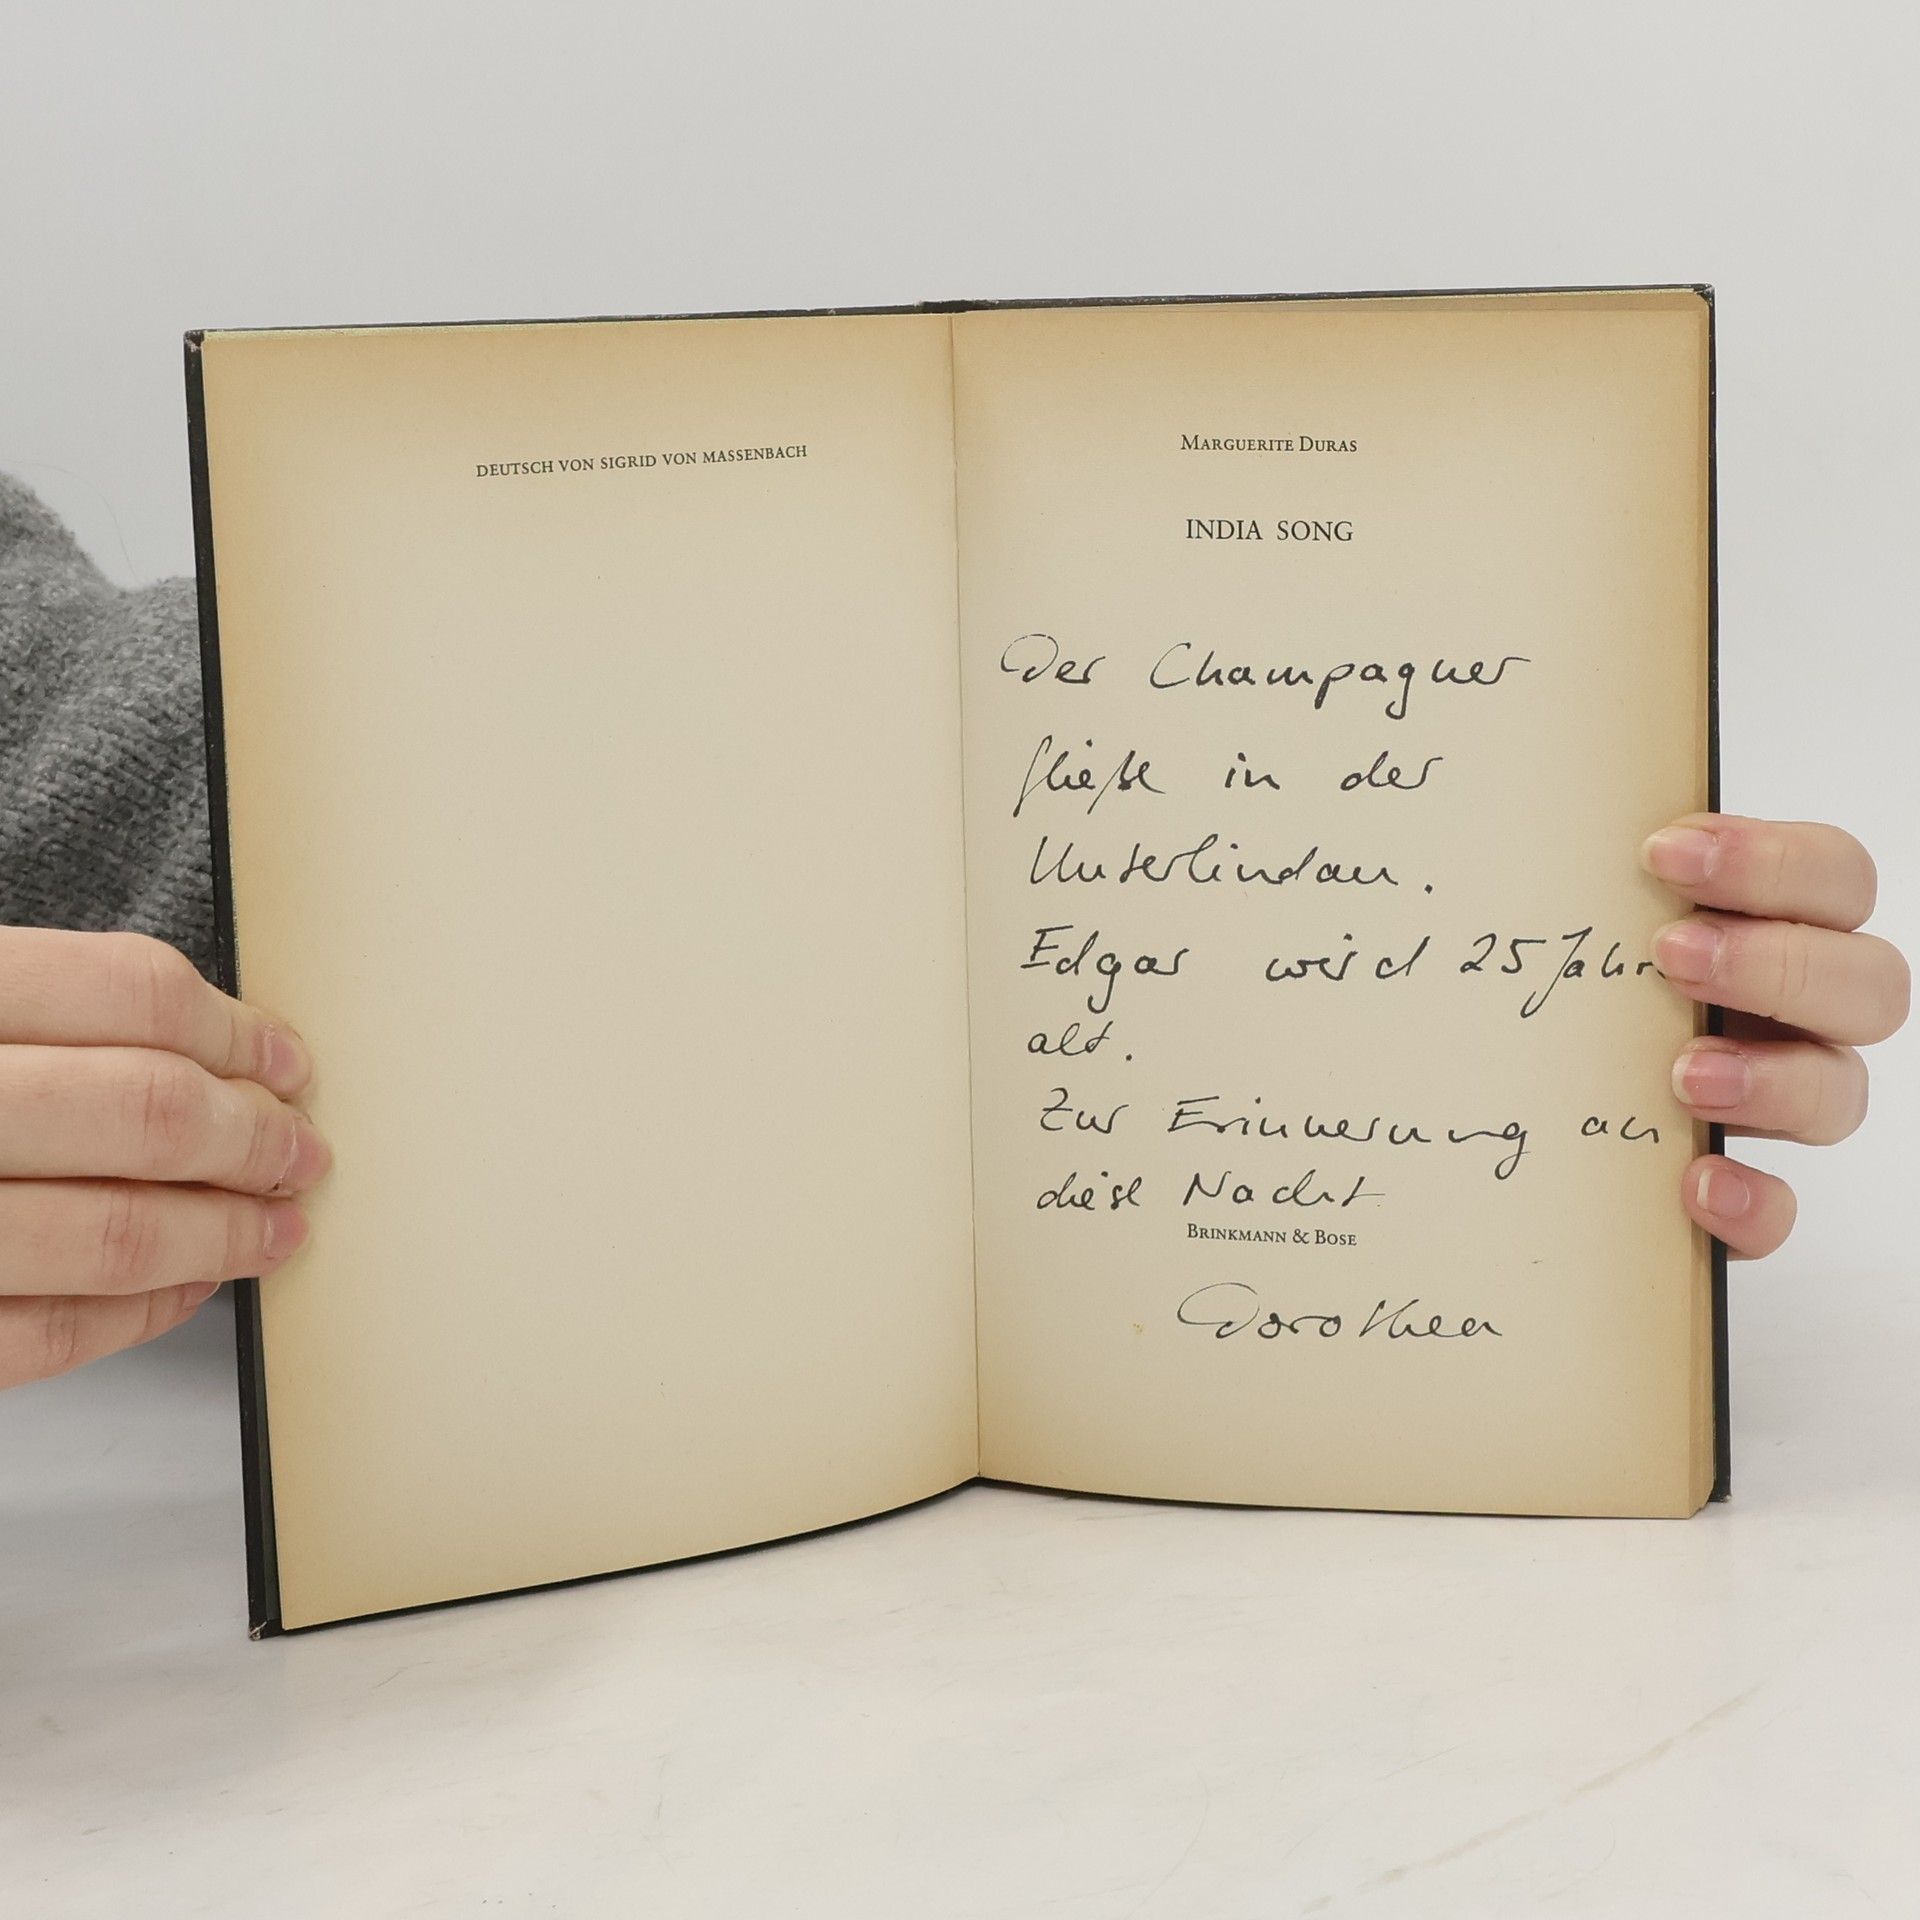 DEUTSCH VON SIGRID VON MASSENBACH
MARGUERITE DURAS
INDIA SONG
Der Champagner
fließe in der
Unterlindau.
Edgar wird 25 Jahre
alt.
Zur Erinnerung an
diese Nacht
BRINKMANN & BOSE
Dorothea